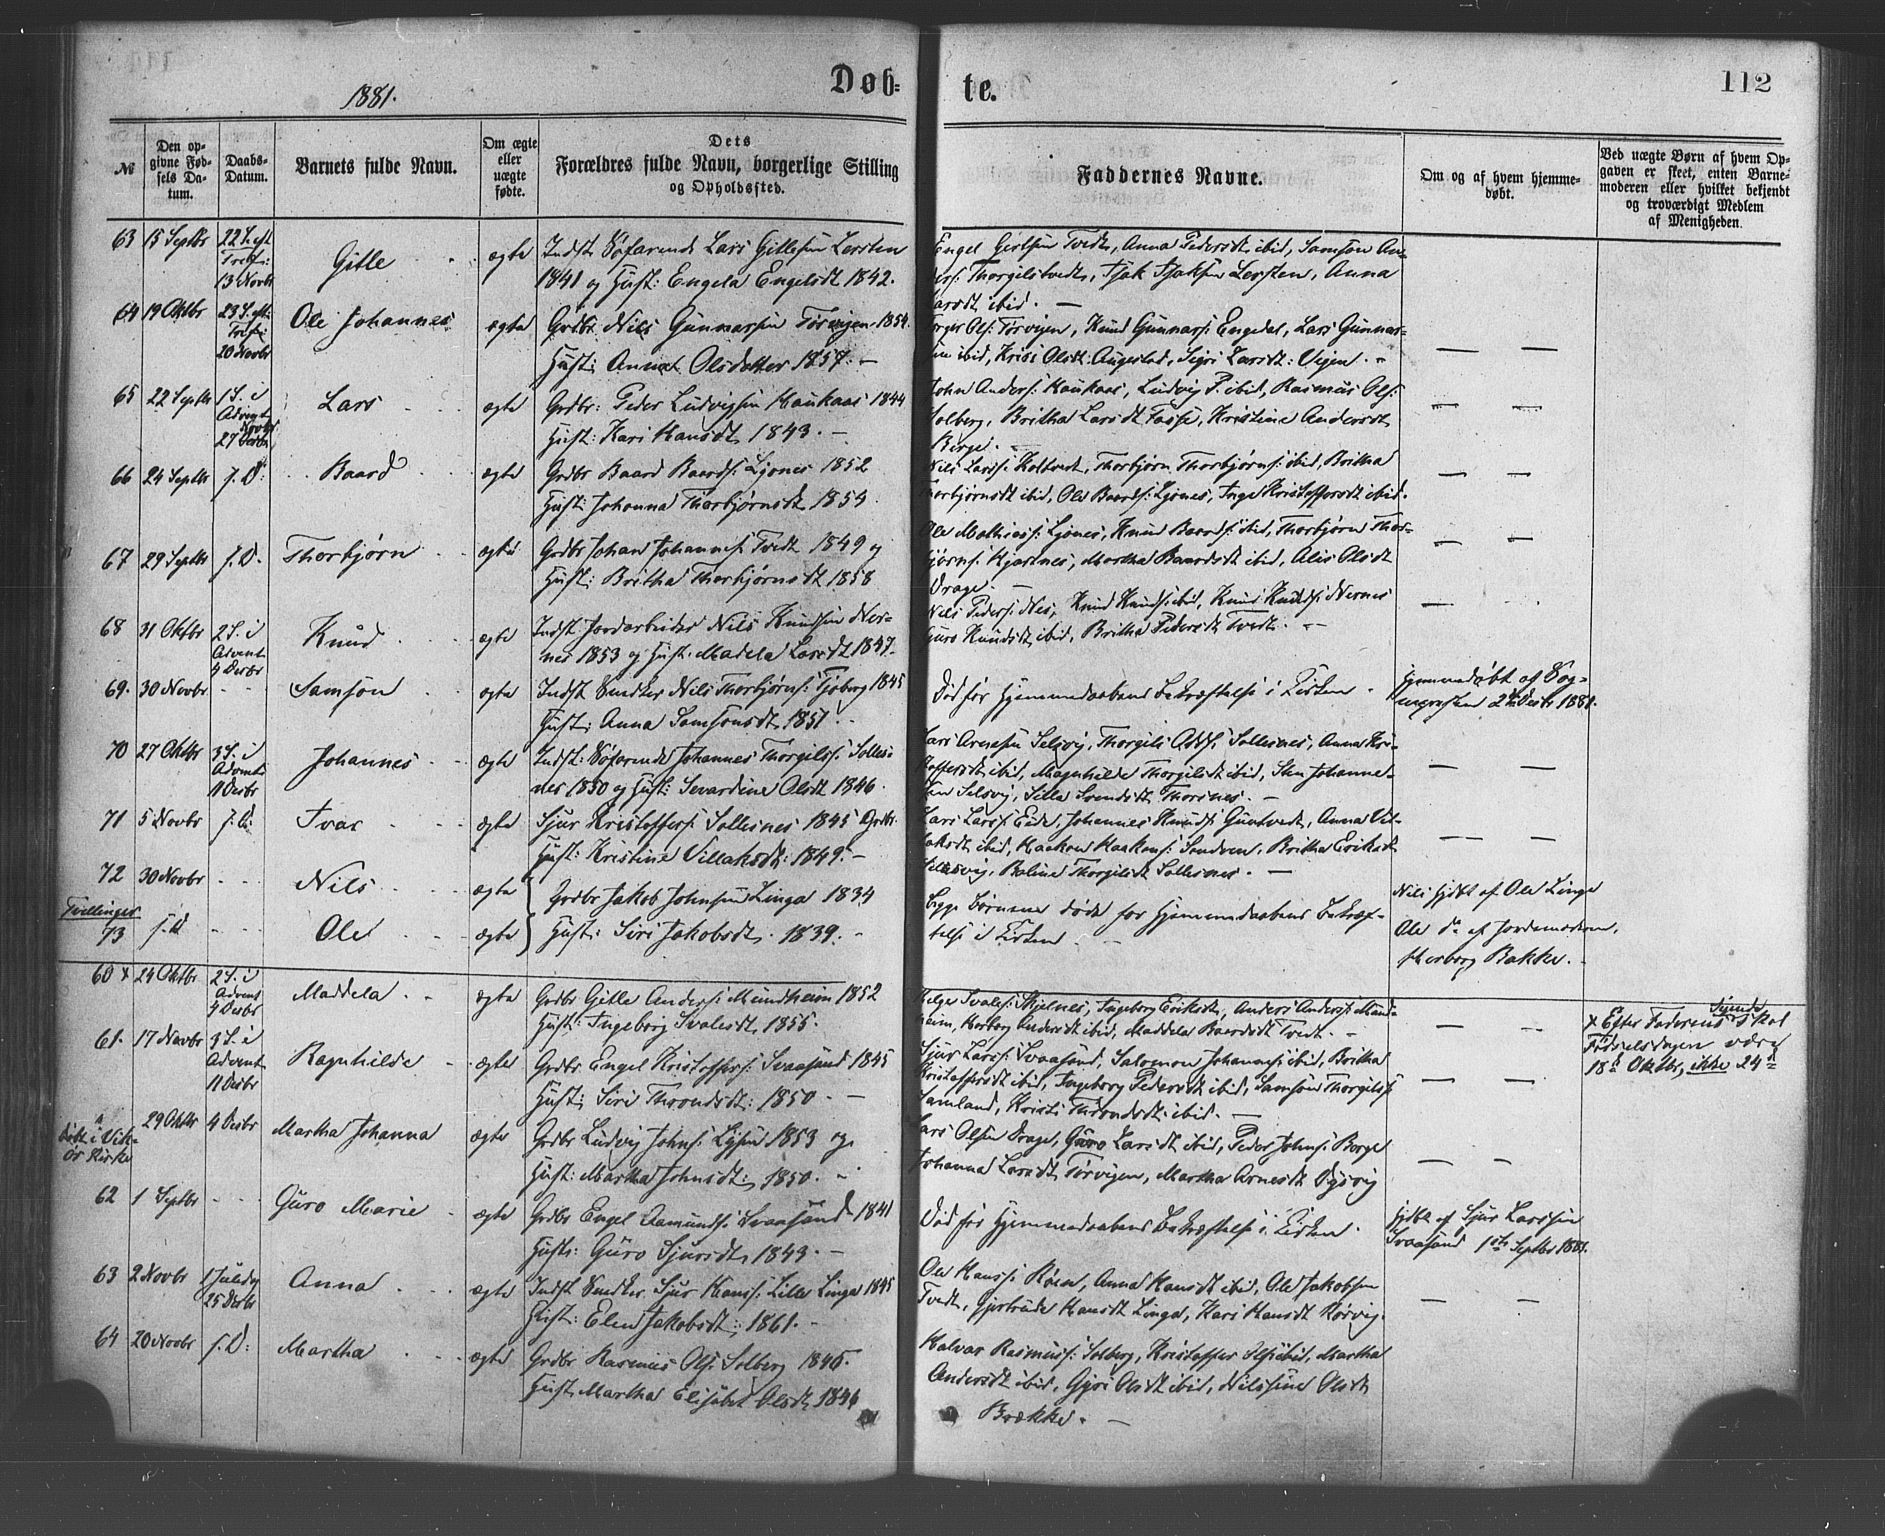 1881.
Døb-
te.
112
№
Den op-
givne Fød-
sels Da-
tum.
Daabs-
Datum.
Barnets fulde Navn.
Om ægte
eller
uægte
fødte.
Dets
Forældres fulde Navn, borgerlige Stilling
og Opholdssted.
Faddernes Navne.
Om og af hvem hjemme-
døbt.
Ved uægte Børn af hvem Op-
gaven er skeet, enten Barne-
moderen eller hvilket bekjendt
og troværdigt Medlem
af Menigheden.
63 15 Septbr 22 S. eft Trefoi: 13 Novbr Gitle ægte Indst Søfarende Lars Gitlesen Lersten
1841 og Hust: Engela Engelsdt 1842.
Tvedt, Anna Pedersdt ibid, Samson An-
Thorgilstvedt, Isak Isaksen Lersten, Anna
Larsdt ibid. —
64 19 Oktbr 23 S. eft: Trefoi: 20 Novbr Ole Johannes ægte Grdbr. Nils Gunnarsen Tørvigen 1854
Hust: Anna Olsdatter 1857. —
Ols: Tørvigen, Knud Gunnars: Engedal, Lars Gunnar-
sen ibid, Kristi Olsdt: Augestad, Sigri Larsdt: Vigen. — — —
65 22 Septbr 1 S. i Advent 27 Novbr Lars ægte Grdbr: Peder Ludvigsen Haukaas 1844
Hust: Kari Hansdt, 1843. —
John Anders: Haukaas, Ludvig P. ibid, Rasmus Ols:
Solberg, Britha Larsdt Fosse, Kristine Andersdt — —
Berge. —
66 24 Septbr s. D: Baard ægte Grdbr Baard Baards: Ljones 1852
Hust: Johanna Thorbjørnsdt, 1854.
Nils Lars: Holtvedt, Thorbjørn Thorbjørns: ibid, Britha
Thorbjørnsdt ibid, Ole Baards: Ljones, Inga Kristoffersdt ibid. — —
67 29 Septbr s. D. Thorbjørn ægte Grdbr Johan Johannes: Tvedt 1849 og
Hust: Britha Thorbjørnsdt 1858
Ole Mathias: Ljones, Knud Baards: ibid, Thorbjørn Thor-
bjørns: Hjartnes, Martha Baardsdt ibid, Alis Olsdt — —
Drage. —
68 31 Oktbr 2 S. i Advent 4 Decbr Knud ægte Indst Jordarbeider Nils Knudsen Ner-
nes 1853 og Hust. Madela Larsdt 1847.
Nils Peders: Nes, Knud Knuds: ibid, Knud Knuds: Nernes
Guro Knudsdt ibid, Britha Pedersdt Tvedt. —
69. 30 Novbr - - Samson ægte Indst Snedker Nils Thorbjørns: Tjoberg 1845
Hust: Anna Samsonsdt, 1851. -
Død før Hjemmedaabens Bekræftelse i Kirken. Hjemmedøbt af Sog-
nepresten 2den Decbr 1881.
70 27 Oktbr 3 S. i Advent 11 Decbr Johannes ægte Indst: Søfarende Johannes Thorgils: Solles-
nes 1850 og Hust: Sevardine Olsdt 1846.
Lars Arnesen Selsvig, Thorgils Odds: Sollesnes, Anna Kri-
stoffersdt ibid, Magnhilde Thorgilsdt ibid, Sten Johanne-
sen Selsvig, Silla Svendsdt Thorsnes. — — —
71 5 Novbr s. D: Ivar ægte Sjur Kristoffers: Sollesnes 1845 Grdbr:
Hust: Kristine Villaksdt: 1849. —
Lars Lars: Eide, Johannes Knuds: Guvtvedt, Anna Vil-
laksdt ibid, Haakon Haakons: Sandven, Britha Eriksdt
Selsvig, Boline Thorgilsdt Sollesnes. — — —
72 30 Novbr - - Nils ægte Grdbr Jakob Johnsen Linga 1834
Tvillinger
73 s. D - - Ole ægte Hust: Siri Jakobsdt. 1839. -
Begge Børnene døde før Hjemmedaabens Bekræf-
telse i Kirken. -
Nils hjdbt af Ole Linge
Ole do af Jordemoderen,
Bakke. -
60 x 24 Oktbr 2 S. i Advent 4 Decbr Maddela ægte Grdbr Gitle Anders: Mundheim 1852
Hust: Ingeborg Svalesdt, 1855.
Helge Svales: Skjelnes, Ingeborg Eriksdt, Anders Anders: Mund-
heim, Herborg Andersdt ibid, Maddela Baardsdt Tvedt. — — —
x Efter Faderens Sigende skal
Fødselsdagen være
18de Oktbr, ikke 24de
61. 17 Novbr 3 S. i Advent 11 Decbr Ragnhilde ægte Grdbr Engel Kristoffers: Svaasand 1845
Hust; Siri Throndsdt: 1850. —
Sjur Lars: Svaasand, Salomon Johannes: ibid, Britha
Kristoffersdt ibid, Ingeborg Pedersdt ibid, Samson Thorgils:
Samland, Kristi Throndsdt: ibid. — — —
Døbt i Vik-
ør Kirke
29 Oktbr 4 Decbr Martha Johanna ægte Grdbr Ludvig Johns: Lysen 1853 og
Hust: Martha Johnsdt: 1850. -
Lars Olsen Drage, Guro Larsdt ibid, Peder Johns: Berge
Johanna Larsdt Tørvigen, Martha Arnesdt — —
62 1 Septbr - - Guro Marie ægte Grdbr Engel Aamunds: Svaasand 1841
Hust: Guro Sjursdt, 1843. —
Død før Hjemmedaabens Bekræftelse i Kirken. Hjdbt af Sjur Larssen
Svaasand 1ste Septbr 1881.
63 2 Novbr 1 Juledg 25 Decbr Anna ægte Indst Snedker Sjur Hans: Lille Linga 1845
Hust: Elen Jakobsdt: 1861. -
Ole Hans: Røen, Anna Hansdt ibid, Ole Jakobsen
Tvedt, Gjertrude Hansdt Linga, Kari Hansdt Rørvig. — —
64 20 Novbr s. D: Martha ægte Grdbr Rasmus Ols: Solberg 1845.
Hust, Martha Elisabet Olsdt, 1846
Halvar Rasmus: Solberg, Kristoffer Ols: ibid, Martha
Andersdt ibid, Gjøri Olsdt ibid, Nilsine Olsdt
Brække. —